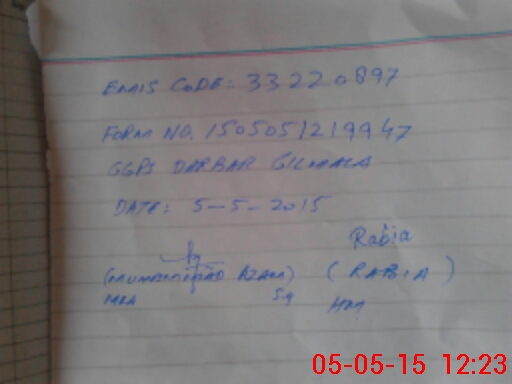 EMIS CODE: 33220897
FORM NO. 1505051219947
GGPS DARBAR GILMALA
DATE: 5-5-2015
Rabia
(MUHAMMAD AZAM) (RABIA)
MEA HM
05-05-15 12:23